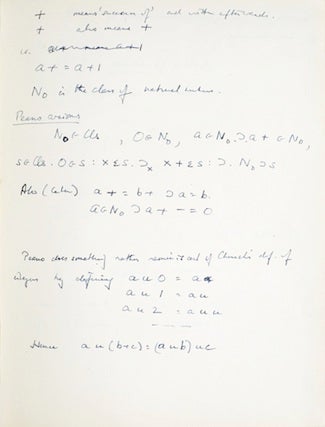 + means 'successor of' and written afterwards.
+ also means +
i.e.
a+ = a+1
N₀ is the class of natural numbers.
Peano axioms
N₀ ∈ Cls , 0 ∈ N₀ , a ∈ N₀ . ⊃ . a+ ∈ N₀ ,
s ∈ Cls . 0 ∈ s : x ε s . ⊃ₓ x+ ε s : ⊃ . N₀ ⊃ s
Also (later) a+ = b+ ⊃ a = b.
a ∈ N₀ ⊃ a+ -= 0
Peano does something rather reminiscent of Church's def. of
integers by defining a u 0 = a
a u 1 = a u
a u 2 = a u u
Hence a u (b+c) = (a u b) u c